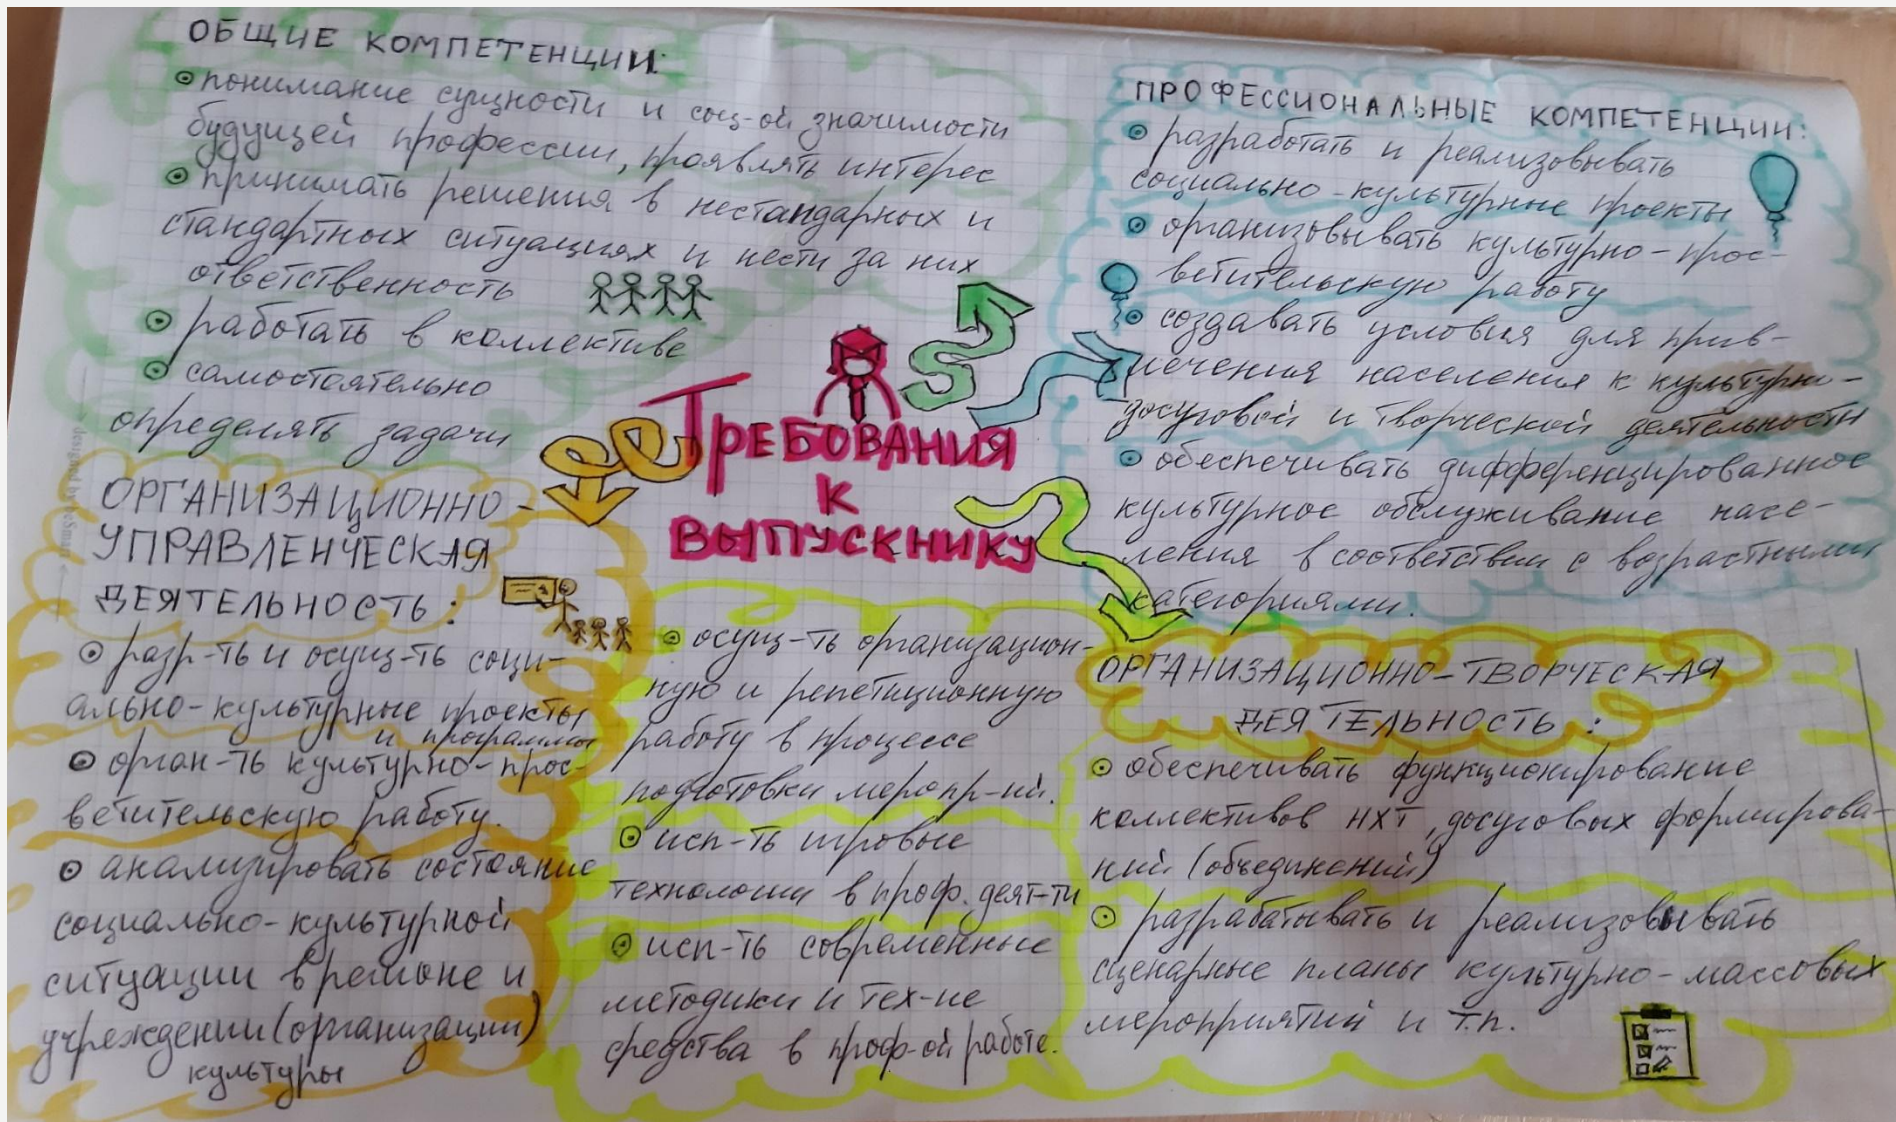 ОБЩИЕ КОМПЕТЕНЦИИ:
понимание сущности и соц-ой значимости
будущей профессии, проявлять интерес
принимать решения в нестандарных и
стандартных ситуациях и нести за них
ответственность
работать в коллективе
самостоятельно
определять задачи
ПРОФЕССИОНАЛЬНЫЕ КОМПЕТЕНЦИИ:
разработать и реализовывать
социально-культурные проекты
организовывать культурно-прос-
ветительскую работу
создавать условия для прив-
лечения населения к культурно-
досуговой и творческой деятельности
обеспечивать дифференцированное
культурное обслуживание насе-
ления в соответствии с возрастными
категориями.
ТРЕБОВАНИЯ
К
ВЫПУСКНИКУ
ОРГАНИЗАЦИОННО-
УПРАВЛЕНЧЕСКАЯ
ДЕЯТЕЛЬНОСТЬ:
разр-ть и осущ-ть соци-
ально-культурные проекты
и программы
орган-ть культурно-прос-
ветительскую работу.
анализировать состояние
социально-культурной
ситуации в регионе и
учреждении (организации)
культуры
осущ-ть организацион-
ную и репетиционную
работу в процессе
подготовки меропр-ий.
исп-ть игровые
технологии в проф. деят-ти
исп-ть современные
методики и тех-ие
средства в проф-ой работе.
ОРГАНИЗАЦИОННО-ТВОРЧЕСКАЯ
ДЕЯТЕЛЬНОСТЬ:
обеспечивать функционирование
коллективов НХТ, досуговых формирова-
ний (объединений)
разрабатывать и реализовывать
сценарные планы культурно-массовых
мероприятий и т.п.